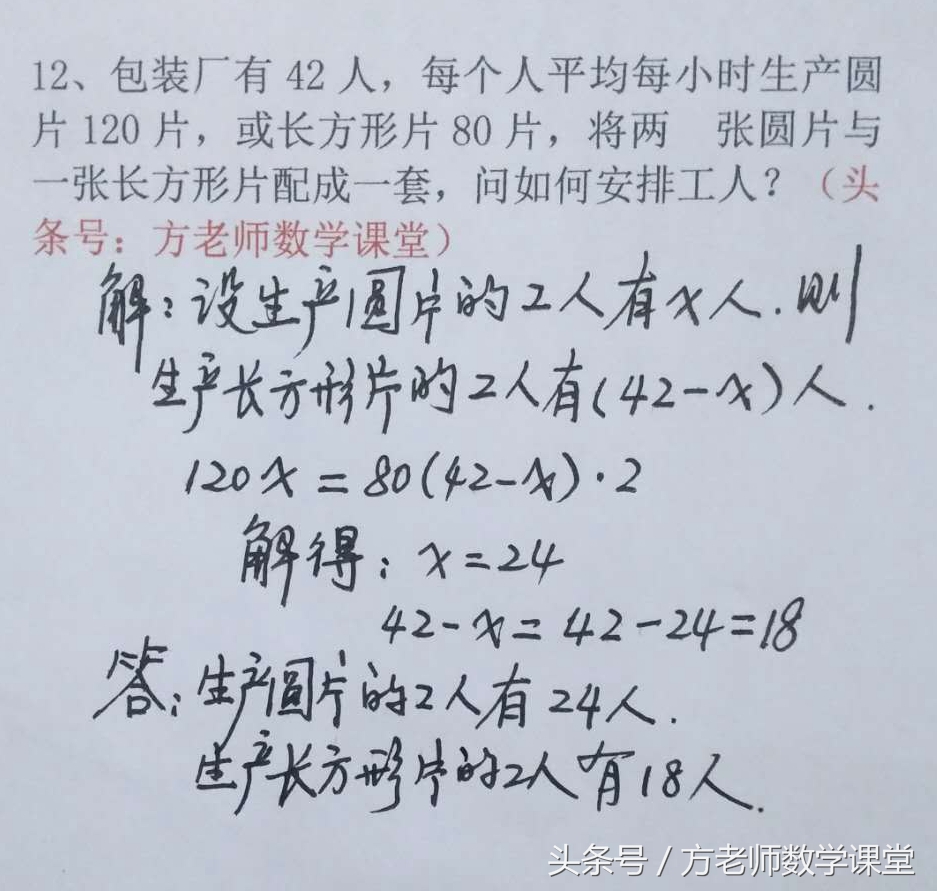 12、包装厂有 42 人，每个人平均每小时生产圆
片 120 片，或长方形片 80 片，将两 张圆片与
一张长方形片配成一套，问如何安排工人？（头
条号：方老师数学课堂）
解：设生产圆片的工人有x人.则
生产长方形片的工人有(42-x)人.
120x=80(42-x)·2
解得：x=24
42-x=42-24=18
答：生产圆片的工人有24人.
生产长方形片的工人有18人.
头条号 / 方老师数学课堂